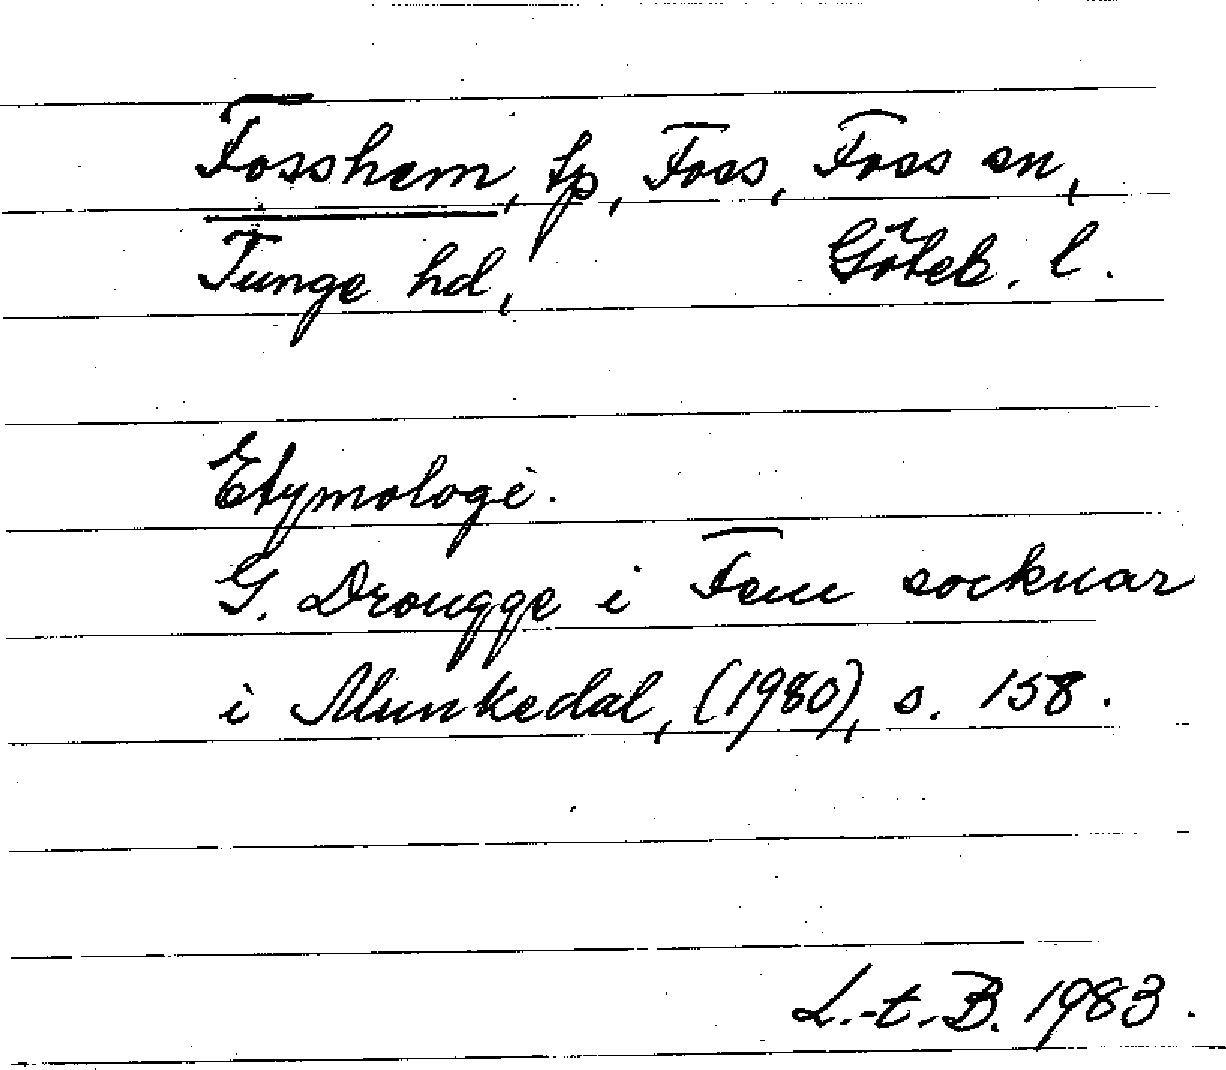 Fosshem, tp, Foss, Foss sn,
Tunge hd, Göteb. l.
Etymologi.
G. Drougge i Fem socknar
i Munkedal, (1980), s. 158.
L.-t.-B. 1983.